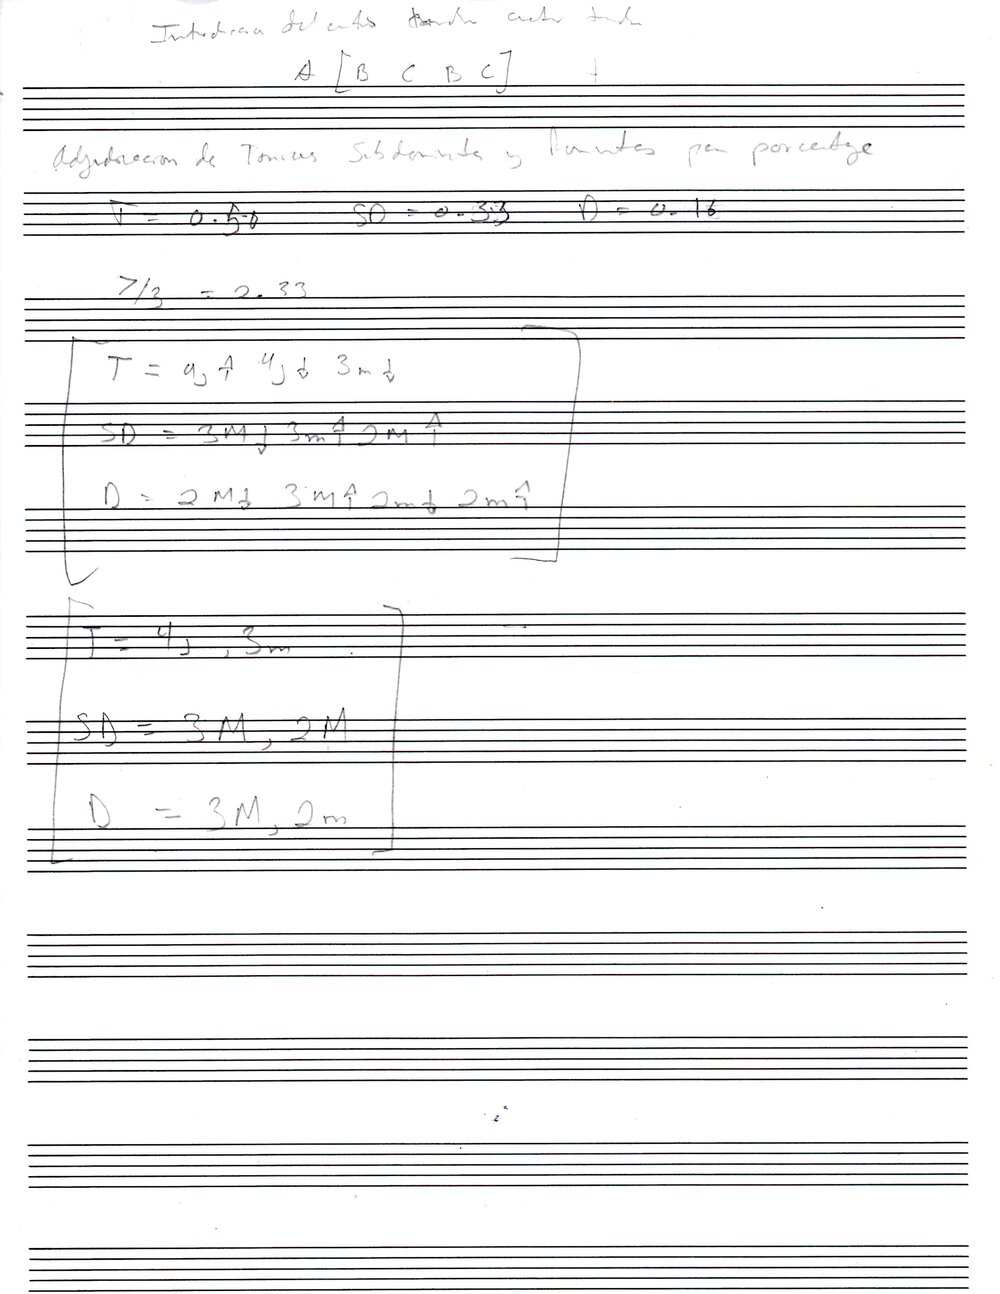 A [B C B C]
Adjudicacion de Tonicas Subdominantes y Dominantes por porcentage
T = 0.50 SD = 0.33 D = 0.16
7/3 = 2.33
T = 4j ↑ 4j ↓ 3m ↓
SD = 3M ↓ 3m ↑ 2M ↑
D = 2M ↓ 3M ↑ 2m ↓ 2m ↑
T = 4j, 3m
SD = 3M, 2M
D = 3M, 2m